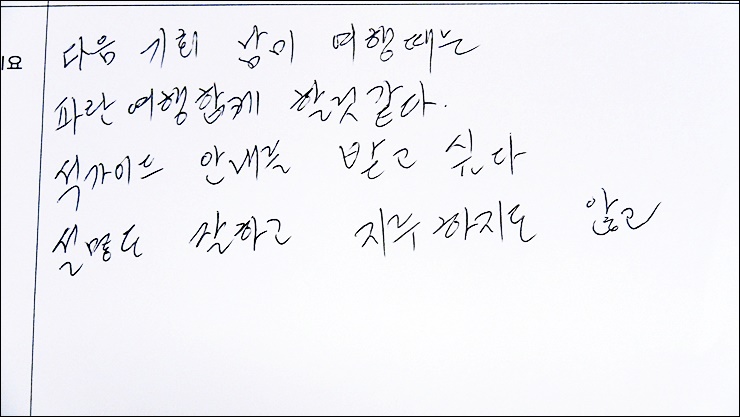 다음 기회 남미 여행때는
파란여행함께 할것같다.
석가이드 안내를 받고 싶다
설명도 잘하고 지루하지도 않고
요